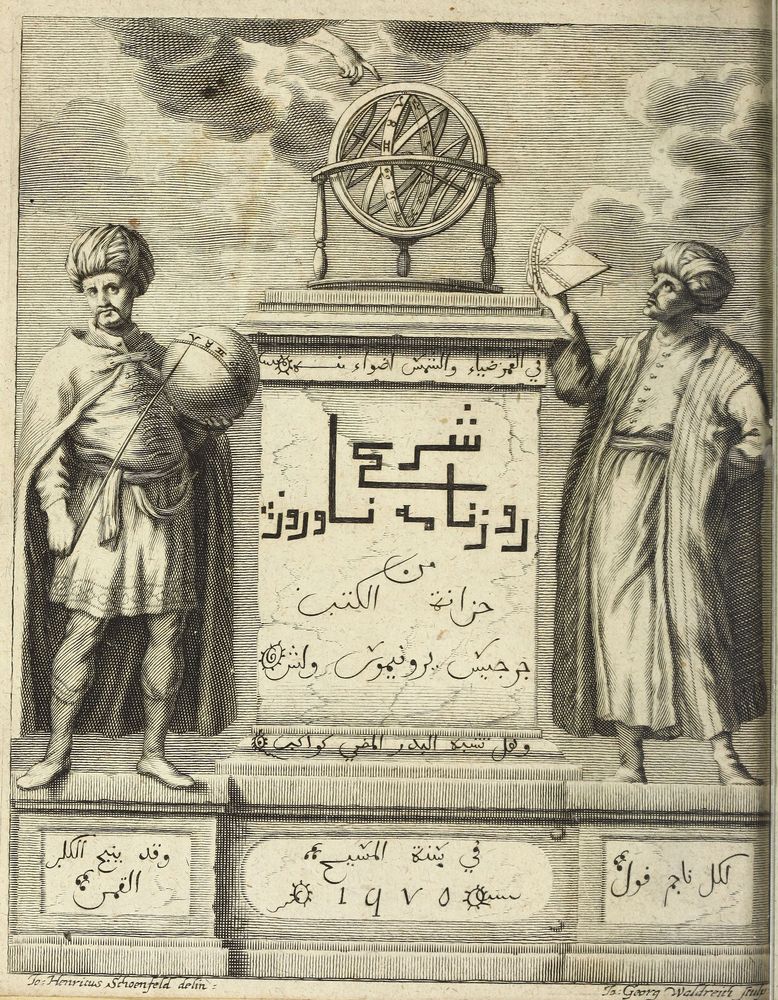 في القمر ضياء والشمس اضواء منه
شرح
روزنامه ناوروز
من
خزانة الكتب
جرجيس يرونيموش ولش
وهل تشبه البدر المضي كواكب
وقد ينبح الكلب
القمر
في سنة المسيح
١٩٧٥
لكل ناجم فول
To: Henricus Schoenfeld delin:
To: Georg Waldreich sculp